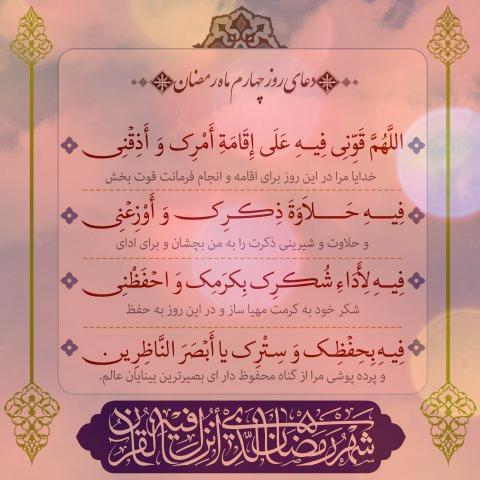 دعای روز چهارم ماه رمضان
اللَّهُمَّ قَوِّنِی فِیهِ عَلَی إِقَامَةِ أَمْرِک وَ أَذِقْنِی
خدایا مرا در این روز برای اقامه و انجام فرمانت قوت بخش
فِیهِ حَلَاوَةَ ذِکرِک وَ أَوْزِعْنِی
و حلاوت و شیرینی ذکرت را به من بچشان و برای ادای
فِیهِ لِأَدَاءِ شُکرِک بِکرَمِک وَ احْفَظْنِی
شکر خود به کرمت مهیا ساز و در این روز به حفظ
فِیهِ بِحِفْظِک وَ سِتْرِک یا أَبْصَرَ النَّاظِرِین
و پرده پوشی مرا از گناه محفوظ دار ای بصیرترین بینایان عالم.
شَهْرُ رَمَضَانَ الَّذِی أُنْزِلَ فِیهِ الْقُرْآنُ